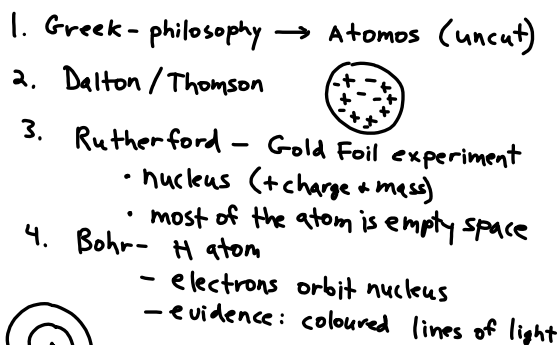 1. Greek - philosophy → Atomos (uncut)
2. Dalton / Thomson
3. Rutherford - Gold Foil experiment
• nucleus (+charge + mass)
• most of the atom is empty space
4. Bohr- H atom
- electrons orbit nucleus
- evidence: coloured lines of light